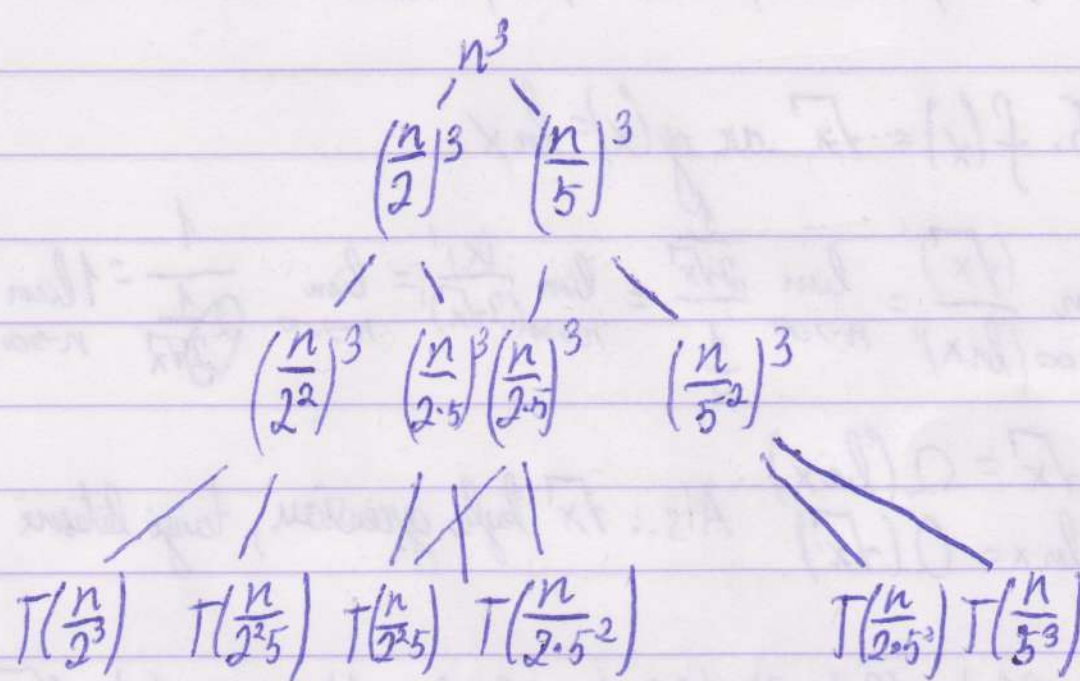 n³
(n/2)³ (n/5)³
(n/2²)³ (n/2·5)³ (n/2·5)³ (n/5²)³
T(n/2³) T(n/2²5) T(n/2²5) T(n/2·5²) T(n/2·5²) T(n/5³)